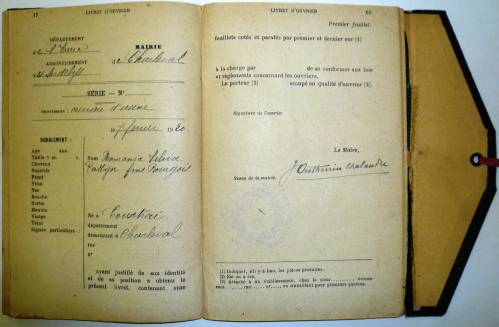 17 LIVRET D'OUVRIER
DÉPARTEMENT
de l'Eure
ARRONDISSEMENT
des Andelys
MAIRIE
de Charleval
SÉRIE — N°
PROFESSION : ouvrière d'usine
février 1920
SIGNALEMENT :
Age ans.
Taille 1 m. c.
Cheveux
Sourcils
Front
Yeux
Nez
Bouche
Barbe
Menton
Visage
Teint
Signes particuliers :
Nom Romania Silvia
Né à Courtrai
département
demeurant à Charleval
rue
n°
ayant justifié de son identité
et de sa position a obtenu le
présent livret, contenant onze
LIVRET D'OUVRIER
Premier feuillet.
feuillets cotés et parafés par premier et dernier sur (1)
à la charge par de se conformer aux lois
et règlements concernant les ouvriers.
Le porteur (2) occupé en qualité d'ouvrier (3).
Signature de l'ouvrier
Le Maire,
Sceau de la mairie.
(1) Indiquer, s'il y a lieu, les pièces produites.
(2) Est ou a été.
(3) Attaché à un établissement, chez le sieur
rue n° , ou travaillant pour plusieurs patrons.